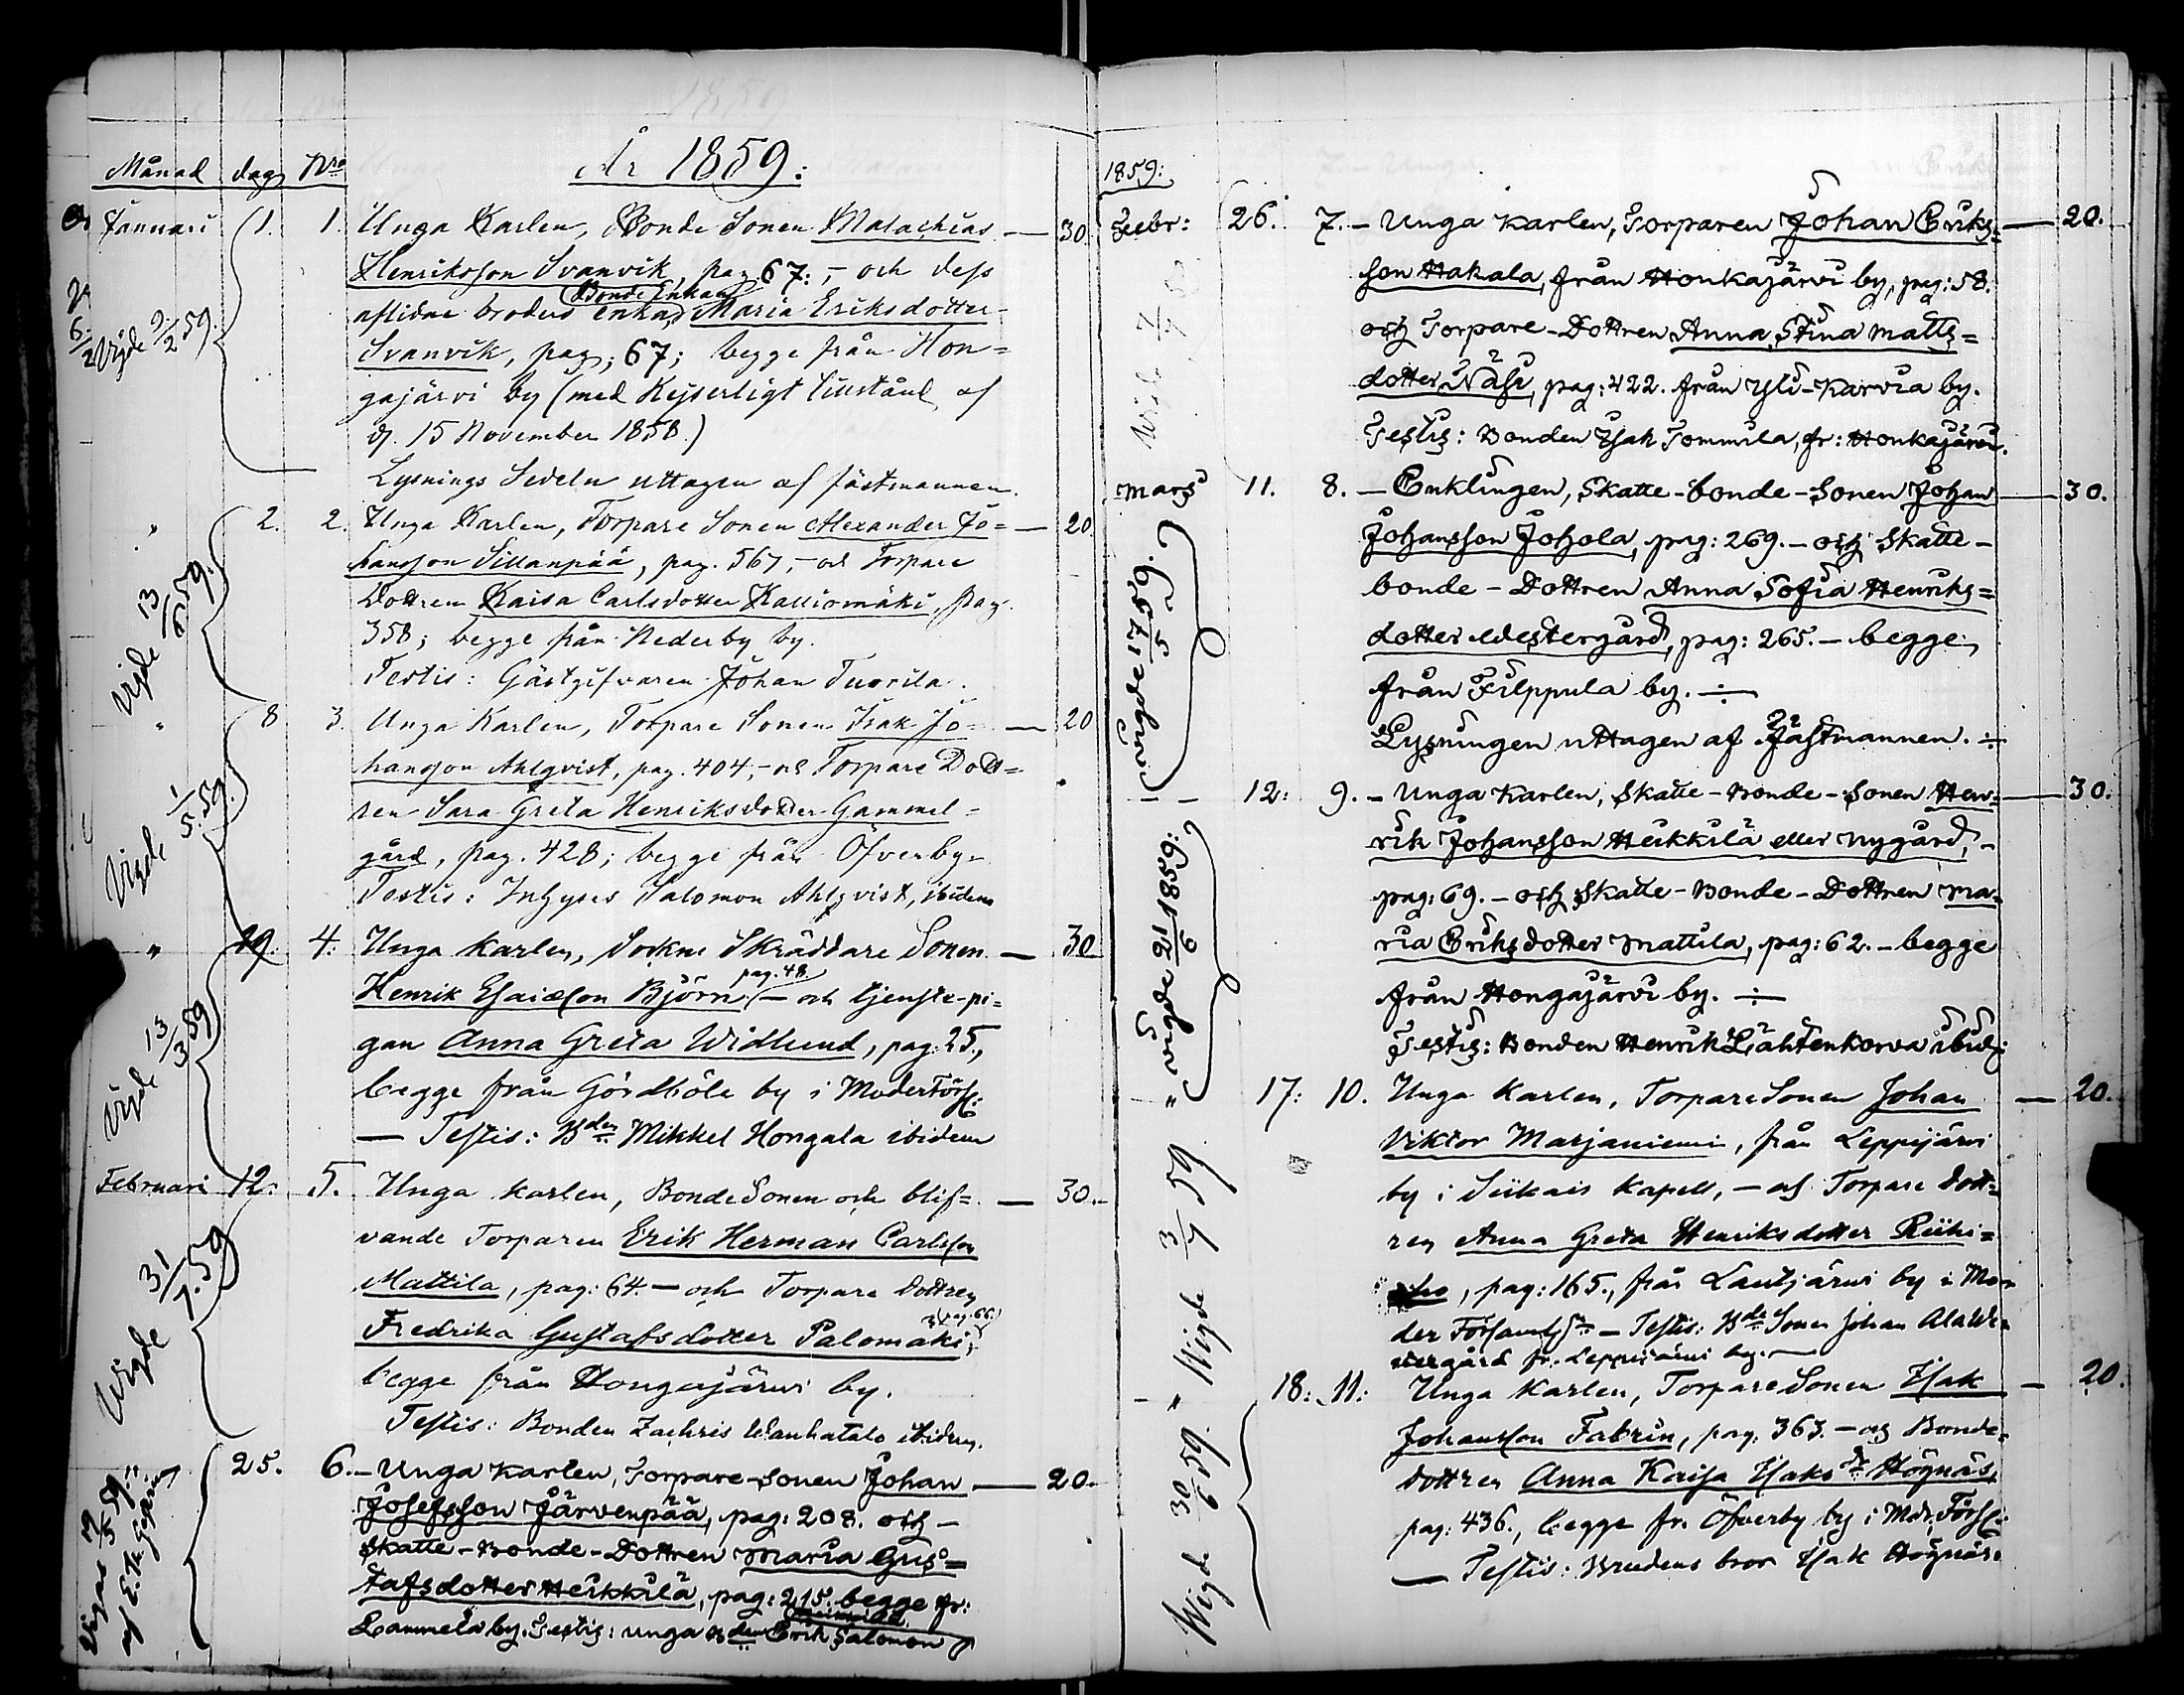 År 1859:
Månad dag Nro
Januari 1. 1. Unga Karlen, Bonde Sonen Malachias — 30
Henriksson Svanvik, pag. 67: – och dess
aflidne broders enkas Maria Eriksdotter
Bonde Enkan
Svanvik, pag; 67; begge från Hon=
gajärvi by (med Kejserligt tillstånd af
d. 15 November 1858.)
Lysnings Sedeln uttagen af fästmannen.
Vigde 9/2 59.
" 2. 2. Unga Karlen, Torpare Sonen Alexander Jo= — 20
hansson Sillanpää, pag. 567, – och Torpare
Dottren Kaisa Carlsdotter Kalliomäki, pag.
358; begge från Nederby by.
Testis: Gästgifvaren Johan Tuorila.
Vigde 13/6 59.
" 8 3. Unga Karlen, Torpare Sonen Isak Jo= — 20
hansson Ahlqvist, pag. 404, – och Torpare Dott=
ren Sara Greta Henriksdotter Gammel=
gård, pag. 428; begge från Öfverby.
Testis: Inhyses Salomon Ahlqvist, ibidem
Vigde 1/5 59.
" 19. 4. Unga Karlen, Sockne Skräddare Sonen — 30
Henrik Esaiæson Björn pag. 48. – och tjenste-pi=
gan Anna Greta Widlund, pag: 25.,
begge från Gördböle by i Moderförs:
— Testis: Bden Mikkel Hongala ibidem
Vigde 13/3 59
Februari 12. 5. Unga Karlen, Bonde Sonen och blif= — 30.
vande Torparen Erik Herman Carlsson
Mattila, pag: 64. – och Torpare Dottren
Fredrika Gustafsdotter Palomäki, pag. 66.
begge från Hongajärwi by.
Testis: Bonden Zachris Wanhatalo ibidem.
Wigde 31/7. 59
25. 6. – Unga Karlen, Torpare-Sonen Johan — 20.
Josefsson Järvenpää, pag: 208. och –
Skatte-Bonde-Dottren Maria Gus=
tafsdotter Heikkilä, pag: 215. begge fr:
Lammela by. Testis: unga Bden Erik Salomon
Vigas 19/3 59:
1859:
Febr: 26. 7. – Unga Karlen, Torparen Johan Eriks= — 20.
son Hakala, från Honkajärvi by, pag: 58.
och Torpare-Dottren Anna Stina Matts=
dotter Näsi, pag: 422. från Yli-Karvia by.
Testis: Bonden Isak Tommila, fr: Honkajärvi.
Mars 11. 8. – Enklingen, Skatte-bonde-Sonen Johan — 30.
Johansson Johola, pag: 269. – och Skatte-
bonde-Dottren Anna Sofia Henriks=
dotter Westergård, pag: 265. – begge
från Filppula by. ÷
Lysningen uttagen af Fästmannen. ÷
– 12: 9. – Unga Karlen, Skatte-Bonde-Sonen Hen= — 30.
rik Johansson Heikkilä eller Nygård, –
pag: 69. – och Skatte-Bonde-Dottren Ma=
ria Eriksdotter Mattila, pag: 62. – begge
från Hongajärvi by. ÷
Testis: Bonden Henrik Lähtenkorva ibid:
Vigde 21/6 1859:
" 17: 10. Unga Karlen, Torpare Sonen Johan — 20.
Viktor Marjaniemi, från Leppijärvi
by i Siikais Kapell, – och Torpare Dott=
ren Anna Greta Henriksdotter Riihi=
aho, pag: 165., från Lautjärwi by i Mo=
der Församl:n – Testis: Bde Sonen Johan Alawe=
stergård fr. Leppijärwi by. —
Wigde 3/7 59
" 18: 11: Unga Karlen, Torpare Sonen Isak — 20.
Johansson Fabrin, pag. 363. – och Bonde=
dottren Anna Kaisa Isaks dr Högnäs,
pag: 436., begge fr. Öfverby by i Mdr. Förs:
— Testis: Brudens bror Isak Högnäs.
Wigde 30/6 59.